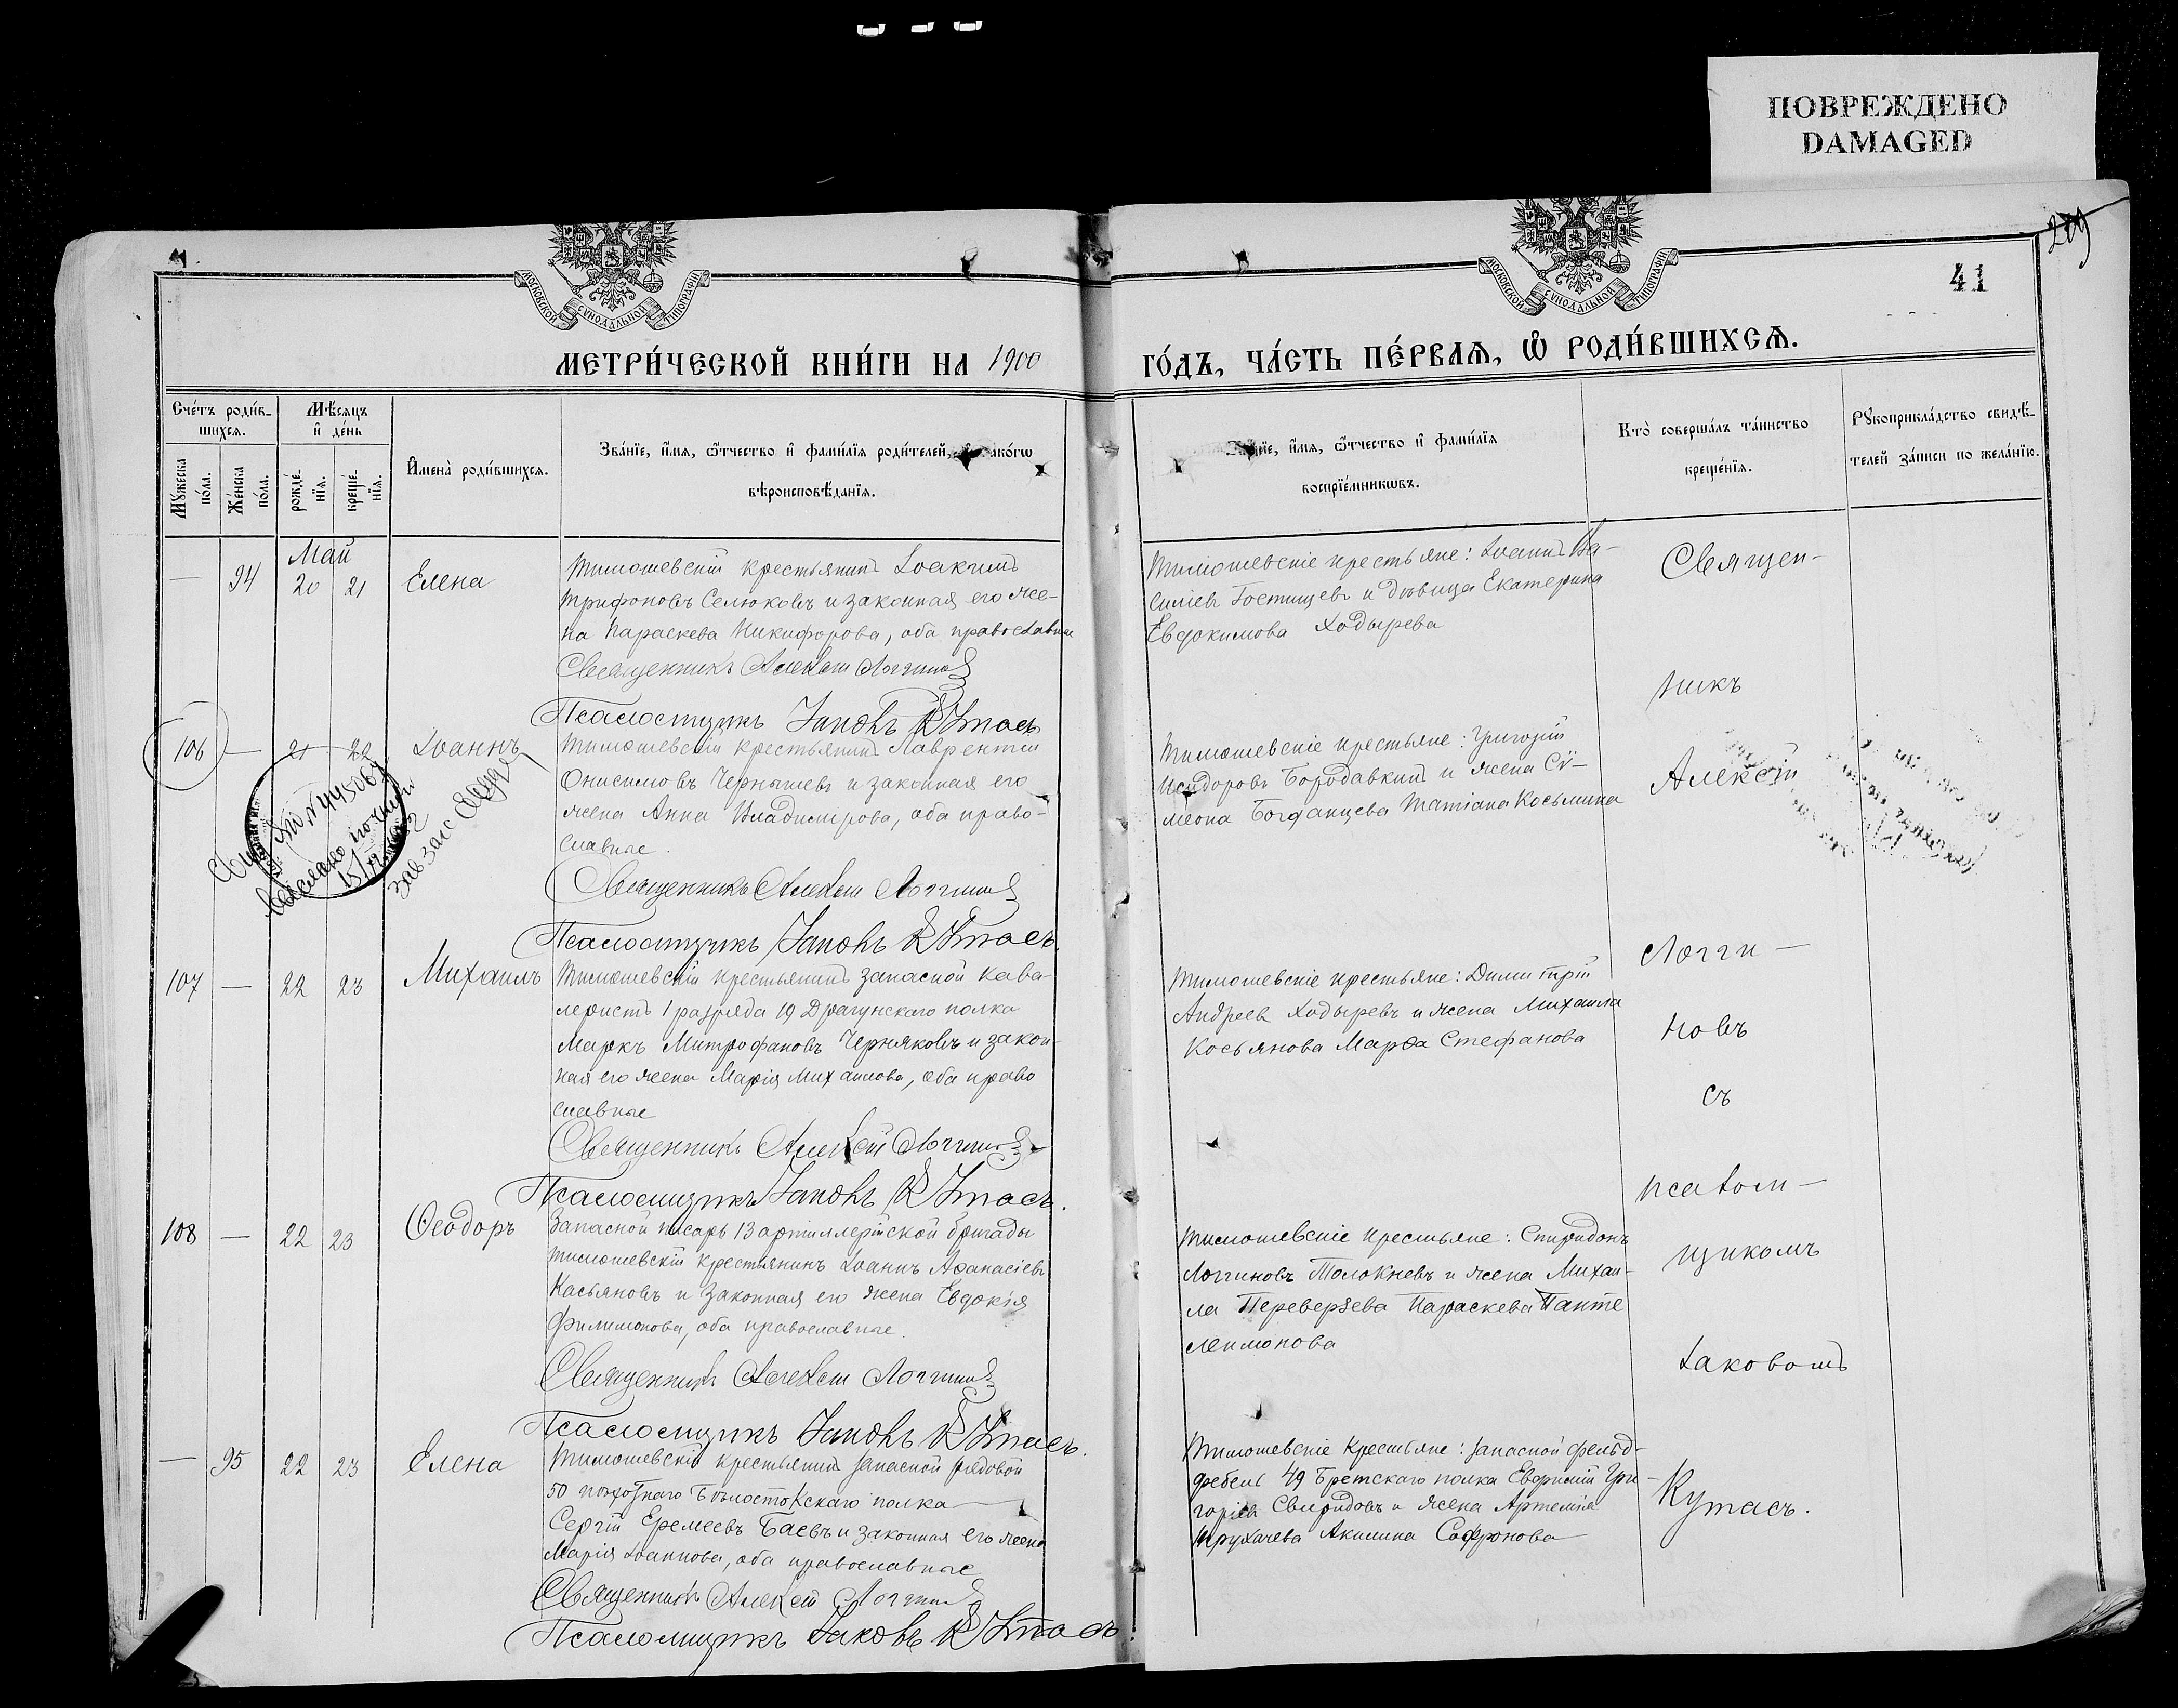 ПОВРЕЖДЕНО
DAMAGED
209
41
МОСКОВСКОЙ СѴНОДАЛЬНОЙ ТИПОГРАФІИ
МОСКОВСКОЙ СѴНОДАЛЬНОЙ ТИПОГРАФІИ
МЕТРИ́ЧЕСКОЙ КНИ́ГИ НА 1900
ГО́ДЪ, ЧА́СТЬ ПЕ́РВАѦ, Ѡ҆ РОДИ́ВШИХСѦ.
Сче́тъ роди́в-
шихсѧ.
Мꙋжеска по́ла.
Же́нска по́ла.
Мѣ́сѧцъ
и҆ де́нь
рожде́-
нїѧ.
креще́-
нїѧ.
И҆мена̀ роди́вшихсѧ.
Зва́нїе, и҆́мѧ, ѻ҆́тчество и҆ фами́лїѧ роди́телей, како́гѡ
вѣроисповѣ́данїѧ.
Зва́нїе, и҆́мѧ, ѻ҆́тчество и҆ фами́лїѧ
воспрїе́мникѡвъ.
Кто̀ соверша́лъ та́инство
креще́нїѧ.
Рꙋкоприкла́дство свидѣ́-
телей за́писи по жела́нїю.
Май
— 94 20 21 Елена
Тимошевскій крестьянинъ Іоакимъ
Трифоновъ Селюковъ и законная его же-
на Параскева Никифорова, оба православные
Священникъ Алексій Логгиновъ
Псаломщикъ Іаковъ Кутасъ
Тимошевскіе крестьяне: Іоаннъ Ва-
силіевъ Гостищевъ и дѣвица Екатерина
Евдокимова Ходырева
106 — 21 22 Іоаннъ
Тимошевскій крестьянинъ Лаврентій
Онисимовъ Чернышевъ и законная его
жена Анна Владимірова, оба право-
славные.
Священникъ Алексій Логгиновъ
Псаломщикъ Іаковъ Кутасъ.
Тимошевскіе крестьяне: Григорій
Исидоровъ Бородавкинъ и жена Сі-
меона Богданцева Татіана Косьмина
107 — 22 23 Михаилъ
Тимошевскій крестьянинъ запасной кава-
леристъ 1 разряда 19 Драгунскаго полка
Маркъ Митрофановъ Черняковъ и закон-
ная его жена Марія Михаилова, оба право
славные
Священникъ Алексій Логгиновъ
Псаломщикъ Іаковъ Кутасъ.
Тимошевскіе крестьяне: Димитрій
Андреевъ Ходыревъ и жена Михаила
Косьянова Марѳа Стефанова
108 — 22 23 Ѳеодоръ
Запасной писарь 13 артиллерійской бригады
Тимошевскій крестьянинъ Іоаннъ Аѳанасіевъ
Касьяновъ и законная его жена Евдокія
Филимонова, оба православные.
Священникъ Алексій Логгиновъ
Псаломщикъ Іаковъ Кутасъ.
Тимошевскіе крестьяне: Спиридонъ
Логгиновъ Толокневъ и жена Михаи-
ла Переверзева Параскева Панте
леимонова
— 95 22 23 Елена
Тимошевскій крестьянинъ запасной рядовой
50 пѣхотнаго Бѣлостокскаго полка
Сергій Еремеевъ Баевъ и законная его жена
Марія Іоаннова, оба православные
Священникъ Алексій Логгиновъ
Псаломщикъ Іаковъ Кутасъ.
Тимошевскіе крестьяне: запасной фельд-
фебель 49 Брестскаго полка Евфимій Гри-
горіевъ Свиридовъ и жена Артемія
Акилина Софронова
Священ-
никъ
Алексій
Логги-
новъ
съ
псалом-
щикомъ
Іаковомъ
Кутасъ.